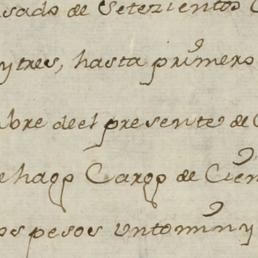 sado de Setezientos
ytres, hasta primero
bre deel presente de
e hago Cargo de Cien
os pesos untomin y